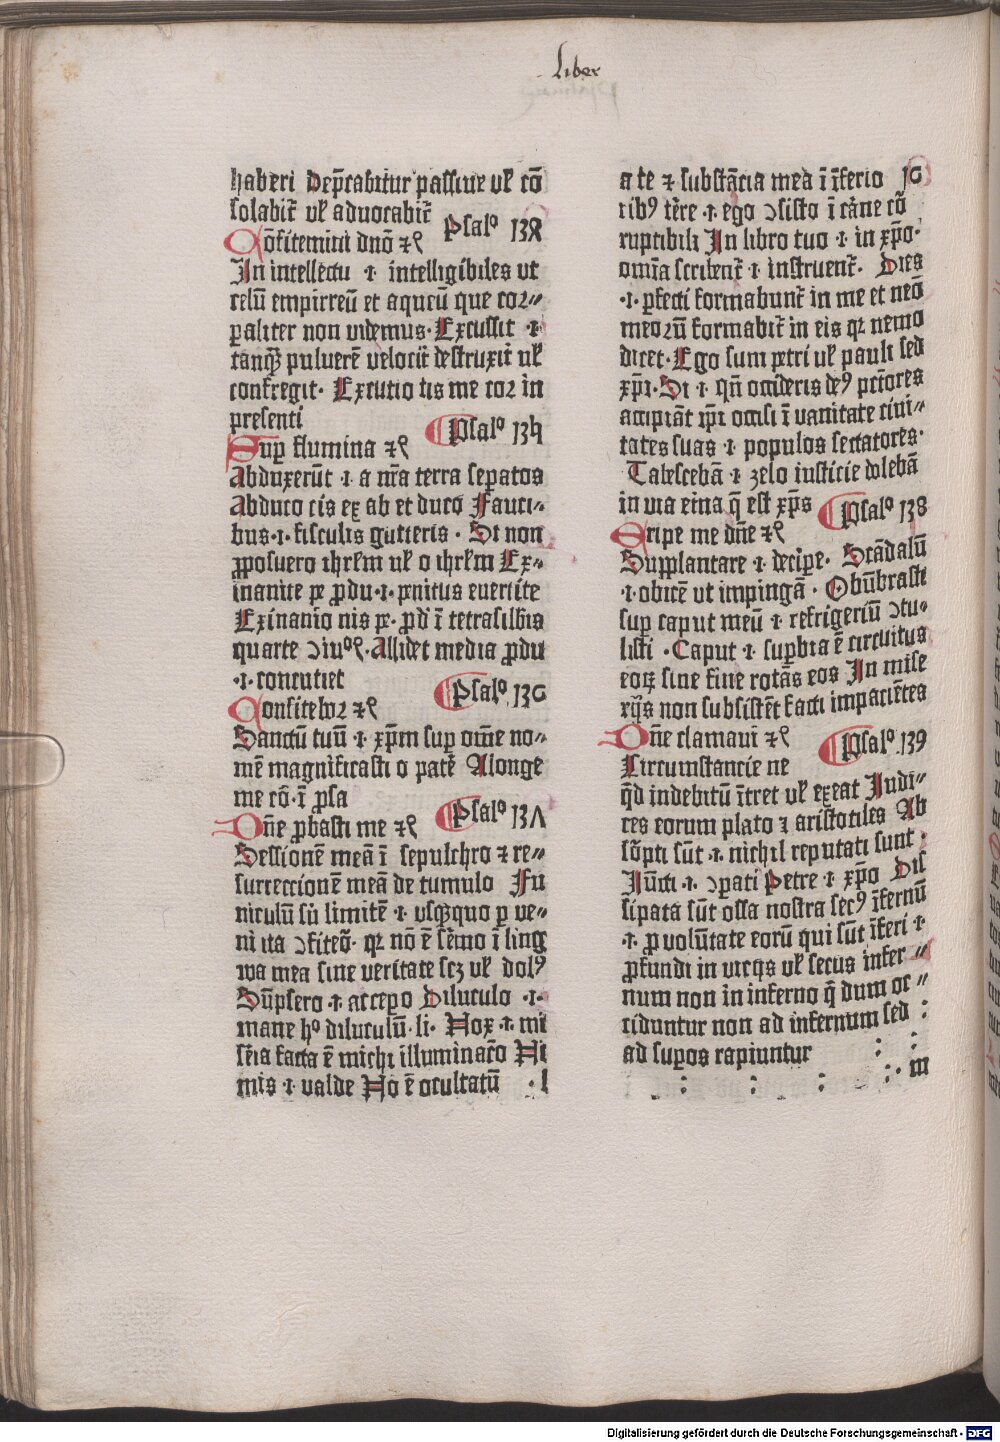 Liber
haberi Dep̄cabitur passiue vł cō
solabit̄ vł aduocabit̄
Psalº 13Ꝝ
Cōfitemini dnō ⁊cꝭ
In intellectu .ı. intelligibiles vt
celū empirreū et aqueū que cor〃
ꝑaliter non videmus. Excussit .ı.
tanqꝫ puluerē velocit̄ destruxit vł
confregit. Excutio tis me cor in
presenti
Psalº 13ꝩ
Suꝑ flumina ⁊cꝭ
Abduxerūt .ı. a nr̄a terra seꝑatos
Abduco cis ex ab et duco Fauci〃
bus .ı. fisculis gutteris . Si non
ꝓposuero ihrłm vł o ihrłm Ex〃
inanite ꝑ ꝓdu .ı. penitus euertite
Exinanio nis ꝑ. ꝓd ī tetrasilbis
quarte ↄiuºꝭ. Allidet media ꝓdu
.ı. concutiet
Psalº 13G
Confitebor ⁊cꝭ
Sanctū tuū .ı. xp̄m suꝑ om̄e no〃
mē magnificasti o pat̄e Alonge
me cō. ī ꝓsa
Psalº 13Λ
Dn̄e ꝓbasti me ⁊cꝭ
Sessionē meā ī sepulchro ⁊ re〃
surreccionē meā de tumulo Fu
niculū sū limitē .ı. vsqꝫquo ꝑ ve〃
ni ita ↄfiteō. qꝛ nō ē sēmo ī ling
wa mea sine veritate scꝫ vł dolꝰ
Sūpsero .ı. accepo Diluculo .ı.
mane hº diluculū. li. Nox .ı. mi
sēia facta ē michi illuminac̄o Ni
mis .ı. valde No ē ocultatū . l
a te ⁊ substācia mea ī īferio 1G
ribꝰ tēre .ı. ego ↄsisto ī cāne cō
ruptibili In libro tuo .ı. in xp̄o.
om̄ia scribent̄ .ı. instruent̄. Dies
.ı. ꝑfecti formabunt̄ in me et neō
meorū formabit̄ in eis qꝛ nemo
dicet. Ego sum petri vł pauli sed
xp̄i. Si .ı. qn̄ occideris deꝰ pctōres
accipiāt ip̄i occisi ī vanitate ciui〃
tates suas .ı. populos sectatores.
Tabescebā .ı. zelo iusticie dolebā
in via etna q̄ est xp̄s
Psalº 138
Eripe me dn̄e ⁊cꝭ
Supplantare .ı. deciꝑe. Scādalū
.ı. obicē vt impingā . Obūbrasti
suꝑ caput meū .ı. refrigeriū ↄtu〃
listi . Caput .ı. suꝑbia ē circuitus
eoꝝ sine fine rotās eos In mise
rijs non subsistēt facti impaciētes
Dn̄e clamaui ⁊cꝭ
Psalº 139
Circumstancie ne
qd̄ indebitū ītret vł exeat Iudi〃
ces eorum plato ⁊ aristotiles Ab
sōpti sūt .ı. nichil reputati sunt :
Iūcti .ı. ↄꝑati Petre .ı. xp̄o Dis
sipata sūt ossa nostra secꝰ īfernū
.ı. ꝓ volūtate eorū qui sūt īferi .ı.
ꝓfundi in vicijs vł secus infer〃
num non in inferno q̄ dum oc〃
ciduntur non ad infernum sed :
ad suꝑos rapiuntur : :
: : : :. m
Digitalisierung gefördert durch die Deutsche Forschungsgemeinschaft - DFG